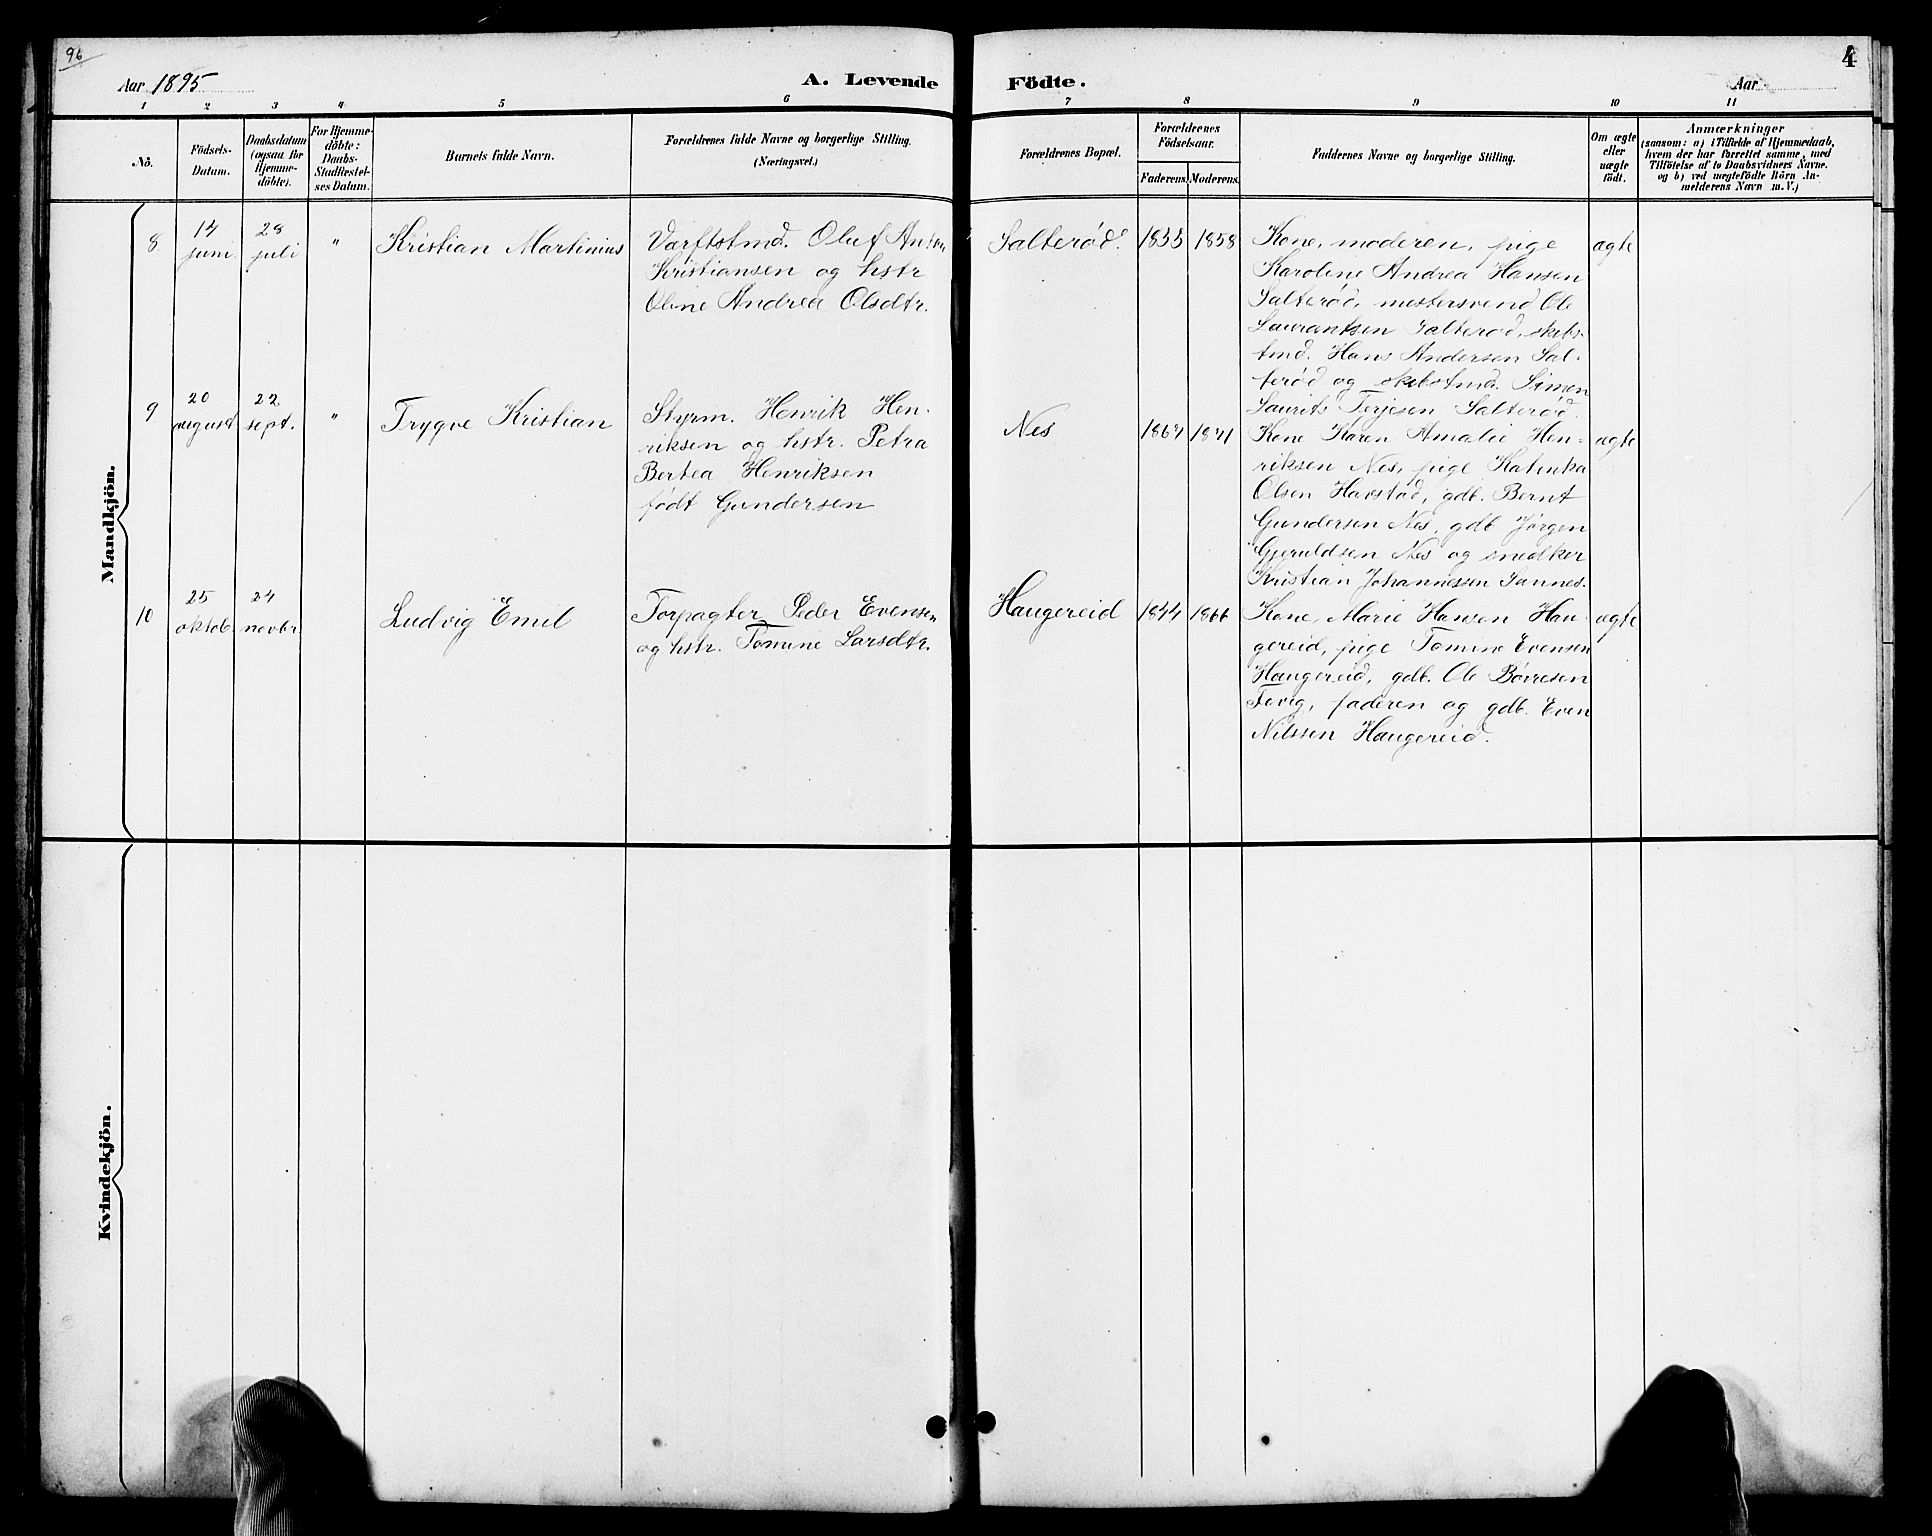 96
4
Aar 1895
A. Levende
Födte.
Aar
1 2 3 4 5 6 7 8 9 10 11
No.
Födsels-
Datum.
Daabsdatum
(ogsaa for
Hjemme-
döbte).
For Hjemme-
döbte:
Daabs-
Stadfæstel-
ses Datum.
Barnets fulde Navn.
Forældrenes fulde Navne og borgerlige Stilling.
(Næringsvei.)
Forældrenes Bopæl.
Forældrenes
Födselsaar.
Faderens.
Moderens.
Faddernes Navne og borgerlige Stilling.
Om ægte
eller
uægte
födt.
Anmærkninger
(saasom: a) i Tilfælde af Hjemmedaab,
hvem der har forrettet samme, med
Tilföielse af to Daabsvidners Navne.
og b) ved uægtefödte Börn An-
melderens Navn m.V.)
Mandkjön.
8
14
juni
28
juli
"
Kristian Martinius
Værftstmd. Oluf Anton
Kristiansen og hstr
Oline Andrea Olsdtr.
Salterød.
1855
1858
Kone, moderen, pige
Karoline Andrea Hansen
Salterød, mestersvend Ole
Laurantsen Salterød, skibs-
tmd. Hans Andersen Sal-
terød og skibstmd. Simen
Laurits Terjesen Salterød.
ægte
9
20
august
22
sept.
"
Trygve Kristian
Styrm. Henrik Hen-
riksen og hstr. Petra
Bertea Henriksen
født Gundersen
Nes
1867
1871
Kone Karen Amalie Hen-
riksen Nes, pige Katinka
Olsen Havstad, gdb. Bernt
Gundersen Nes, gdb Jørgen
Gjeruldsen Nes og snedker
Kristian Johannesen Sannes.
ægte
10
25
oktob.
24
novbr.
Ludvig Emil
Torpagter Peder Evensen
og hstr. Tomine Larsdtr.
Haugereid
1844
1866
Kone, Marie Hansen Hau-
gereid, pige Tomine Evensen
Haugereid, gdb. Ole Børresen
Fevig, faderen og gdb. Even
Nilssen Haugereid.
ægte
Kvindekjön.